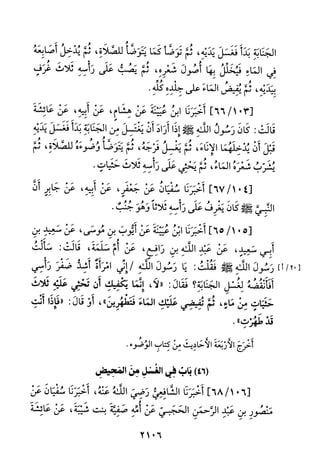 الجَنَابَةِ بَدَأَ فَغَسَلَ يَدَيْهِ، ثُمَّ تَوَضَّأَ كَمَا يَتَوَضَّأُ للصَّلاَةِ، ثُمَّ يُدْخِلُ أَصَابِعَهُ
فِي المَاءِ فَيُخَلِّلُ بِهَا أُصُولَ شَعْرِهِ، ثُمَّ يَصُبُّ عَلَى رَأْسِهِ ثَلاَثَ غُرَفٍ
بِيَدَيْهِ، ثُمَّ يُفِيضُ المَاءَ على جِلْدِهِ كُلِّهِ.
[٦٦/١٠٣] أَخْبَرَنَا ابنُ عُيَيْنَةَ عَنْ هِشَامٍ، عَنْ أَبِيهِ، عَنْ عَائِشَةَ
قَالَتْ: كَانَ رَسُولُ اللَّهِ ﷺ إِذَا أَرَادَ أَنْ يَغْتَسِلَ مِنَ الجَنَابَةِ بَدَأَ فَغَسَلَ يَدَيْهِ
قَبْلَ أَنْ يُدْخِلَهُمَا الإِنَاءَ، ثُمَّ يَغْسِلُ فَرْجَهُ، ثُمَّ يَتَوَضَّأُ وُضُوءَهُ للصَّلاَةِ، ثُمَّ
يُشَرِّبُ شَعْرَهُ المَاءَ، ثُمَّ يَحْثِي عَلَى رَأْسِهِ ثَلاَثَ حَثَيَاتٍ.
[٦٧/١٠٤] أَخْبَرَنَا سُفْيَانُ عَنْ جَعْفَرٍ، عَنْ أَبِيهِ، عَنْ جَابِرٍ أَنَّ
النَّبِيَّ ﷺ كَانَ يَغْرِفُ عَلَى رَأْسِهِ ثَلاَثاً وَهُوَ جُنُبٌ.
[٦٥/١٠٥] أَخْبَرَنَا ابْنُ عُيَيْنَةَ عَنْ أَيُّوبَ بنِ مُوسَى، عَنْ سَعِيدِ بنِ
أَبِي سَعِيدٍ، عَنْ عَبْدِ اللَّهِ بنِ رَافِعٍ، عَنْ أُمِّ سَلَمَةَ، قَالَتْ: سَأَلْتُ
رَسُولَ اللَّهِ ﷺ فَقُلْتُ: يَا رَسُولَ اللَّهِ / إِنِّي امْرَأَةٌ أَشُدُّ ضَفْرَ رَأْسِي [٢٠/أ]
أَفَأَنْقُضُهُ لِغُسْلِ الجَنَابَةِ؟ فَقَالَ: «لاَ، إِنَّمَا يَكْفِيكِ أَنْ تَحْثِي عَلَيْهِ ثَلاَثَ
حَثَيَاتٍ مِنْ مَاءٍ، ثُمَّ تُفِيضِي عَلَيْكِ المَاءَ فَتَطْهُرِينَ»، أَوْ قَالَ: «فَإِذَا أَنْتِ
قَدْ طَهُرْتِ».
أَخْرَجَ الأَرْبَعَةَ الأَحَادِيثَ مِنْ كِتَابِ الوُضُوءِ.
(٤٦) بَابٌ فِي الغُسْلِ مِنَ المَحِيضِ
[٦٨/١٠٦] أَخْبَرَنَا الشَّافِعِيُّ رَضِيَ اللَّهُ عَنْهُ، أَخْبَرَنَا سُفْيَانُ عَنْ
مَنْصُورِ بنِ عَبْدِ الرَّحمَنِ الحَجَبِيِّ عَنْ أُمِّهِ صَفِيَّةَ بنت شَيْبَةَ، عَنْ عَائِشَةَ
٢١٠٦